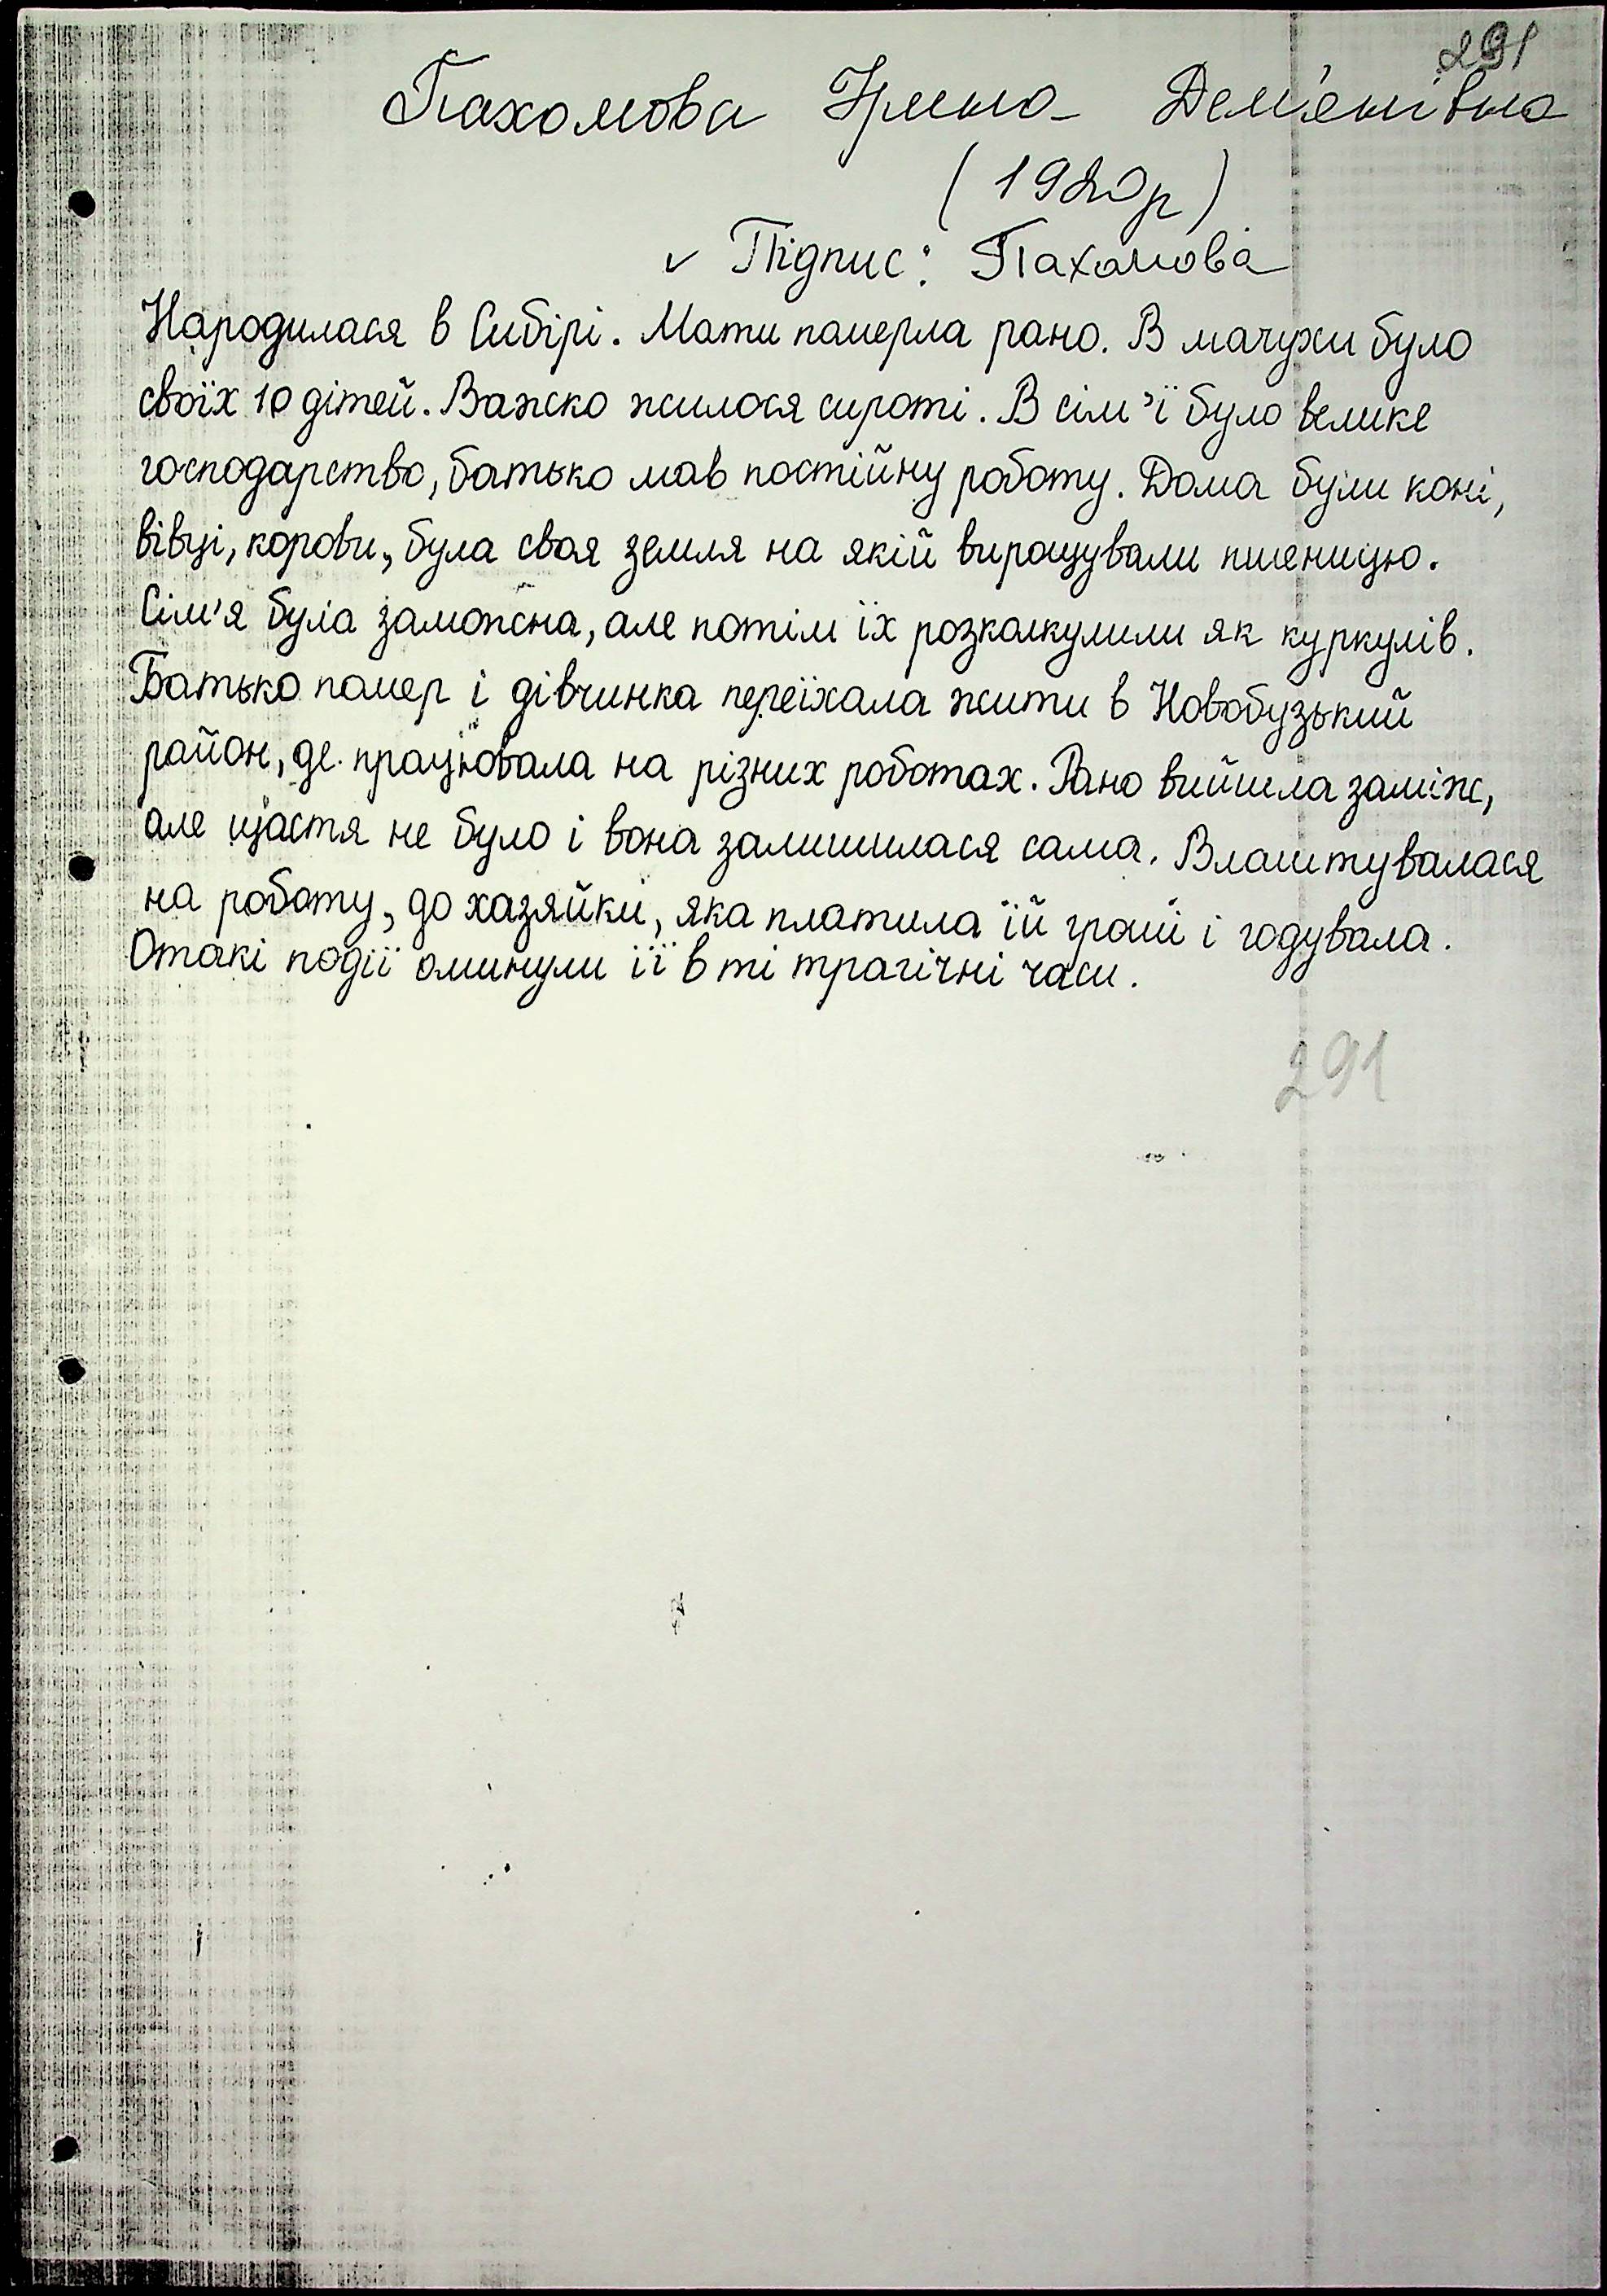 291
Пахомова Ірина Дем'янівна
(1920р)
✓ Підпис: Пахомова
Народилася в Сибірі. Мати померла рано. В мачухи було
своїх 10 дітей. Важко жилося сироті. В сім'ї було велике
господарство, батько мав постійну роботу. Дома були коні,
вівці, корови, була своя земля на якій вирощували пшеницю.
Сім'я була заможна, але потім їх розкалкулили як куркулів.
Батько помер і дівчинка переїхала жити в Новобузький
район, де працювала на різних роботах. Рано вийшла заміж,
але щастя не було і вона залишилася сама. Влаштувалася
на роботу, до хазяйки, яка платила їй гроші і годувала.
Отакі події оминули її в ті трагічні часи.
291